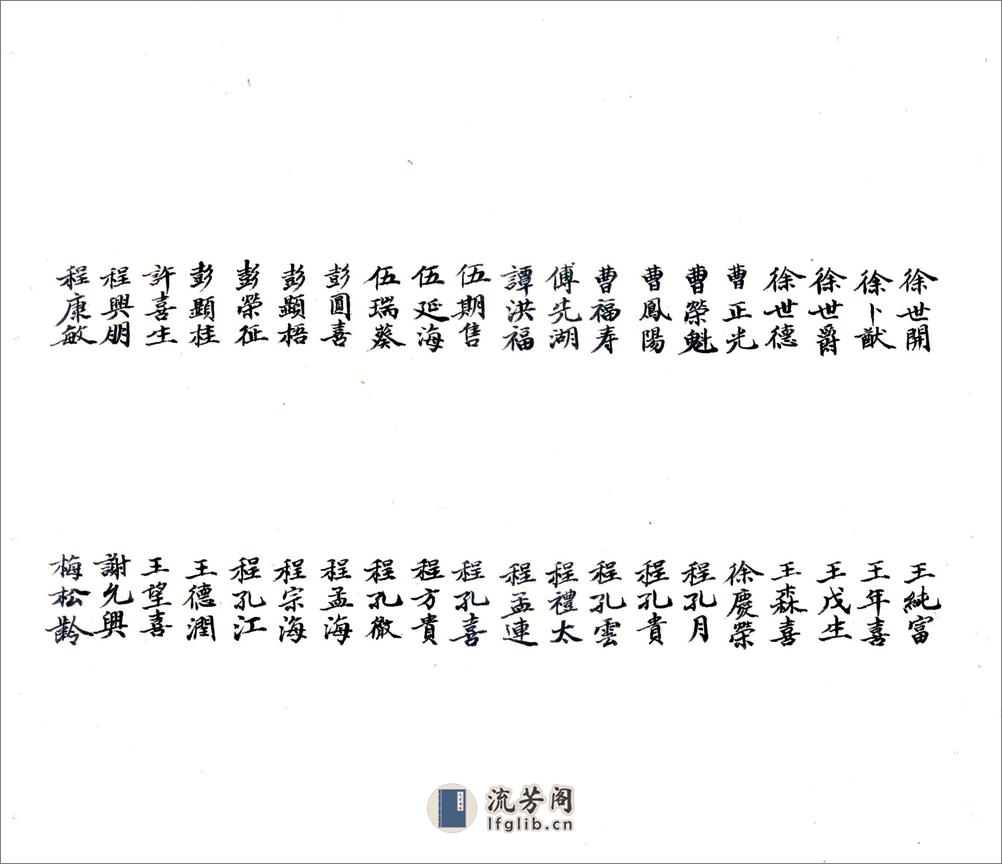 徐世開
徐卜猷
徐世爵
徐世德
曹正光
曹榮魁
曹鳳陽
曹福寿
傅先湖
譚洪福
伍期售
伍延海
伍瑞葵
彭圓喜
彭顯梧
彭榮征
彭顯桂
許喜生
程興朋
程康敏
王純富
王年喜
王戊生
王森喜
徐慶榮
程孔月
程孔貴
程孔雲
程禮太
程孟連
程孔喜
程方貴
程孔徵
程孟海
程宗海
程孔江
王德潤
王望喜
謝允興
梅松齡
流芳阁
lfglib.cn